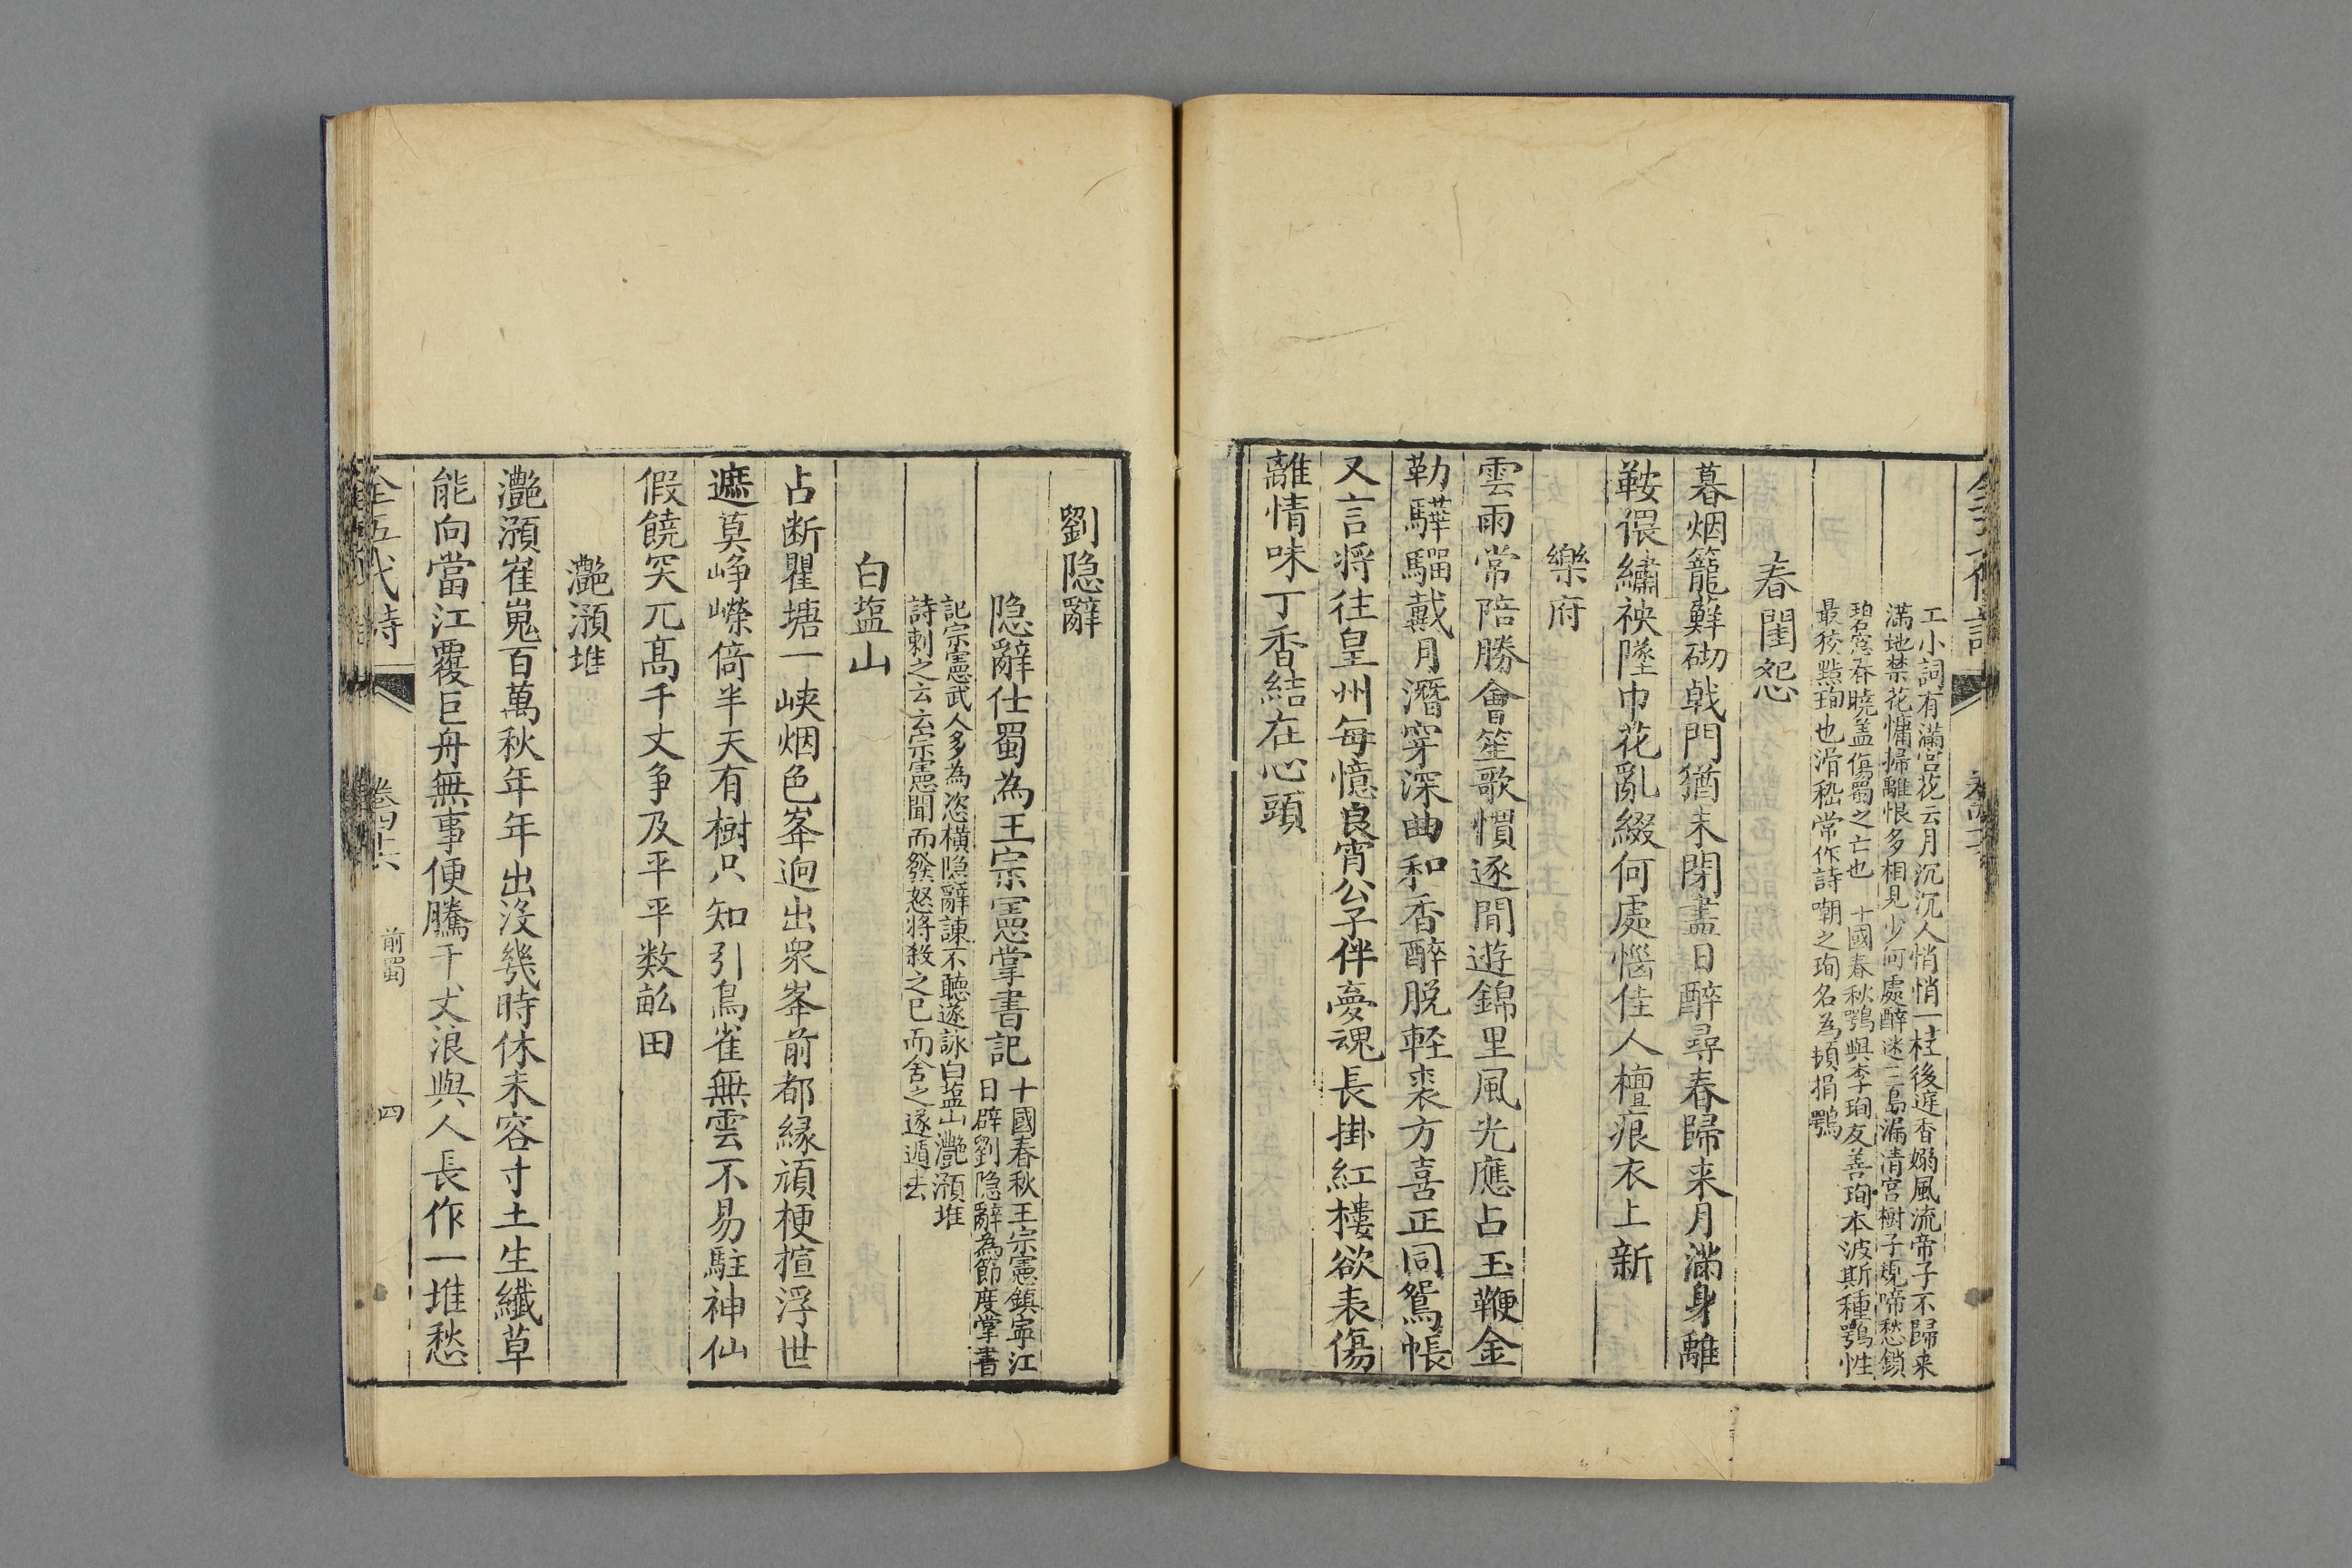 工小詞有滿宮花云月沉沉人悄悄一炷後庭香嫋風流帝子不歸来
滿地禁花慵掃離恨多相見少何處醉迷三島漏清宮樹子規啼愁鎖
碧窓春曉盖傷蜀之亡也 十國春秋鶚與李珣友善珣本波斯種鶚性
最狡黠珣也滑稽常作詩嘲之珣名為頓損 鶚
春閨怨
暮烟籠蘚砌戟門猶未閉盡日醉尋春歸来月滿身離
鞍偎繡袂墜巾花亂綴何處惱佳人檀痕衣上新
樂府
雲雨常陪勝會笙歌慣逐閒遊錦里風光應占玉鞭金
勒驊騮戴月潛穿深曲和香醉脱軽裘方喜正同鴛帳
又言将往皇州每憶良宵公子伴夢魂長掛紅樓欲表傷
離情味丁香結在心頭
劉隐辭
隐辭仕蜀為王宗憲掌書記
十國春秋王宗憲鎮寧江
日辟劉隐辭為節度掌書
記宗憲武人多為恣横隐辭諫不聽遂詠白盐山灔澦堆
詩刺之云云宗憲聞而發怒将殺之已而舍之遂遁去
白盐山
占断瞿塘一峡烟色峯逈出衆峯前都縁頑梗揎浮世
遮莫峥嶸倚半天有樹只知引鳥雀無雲不易駐神仙
假饒突兀髙千丈争及平平数畆田
灔澦堆
灔澦崔嵬百萬秋年年出沒幾時休未容寸土生纎草
能向當江覆巨舟無事便騰千丈浪與人長作一堆愁
全五代詩 卷四十六 前蜀 四